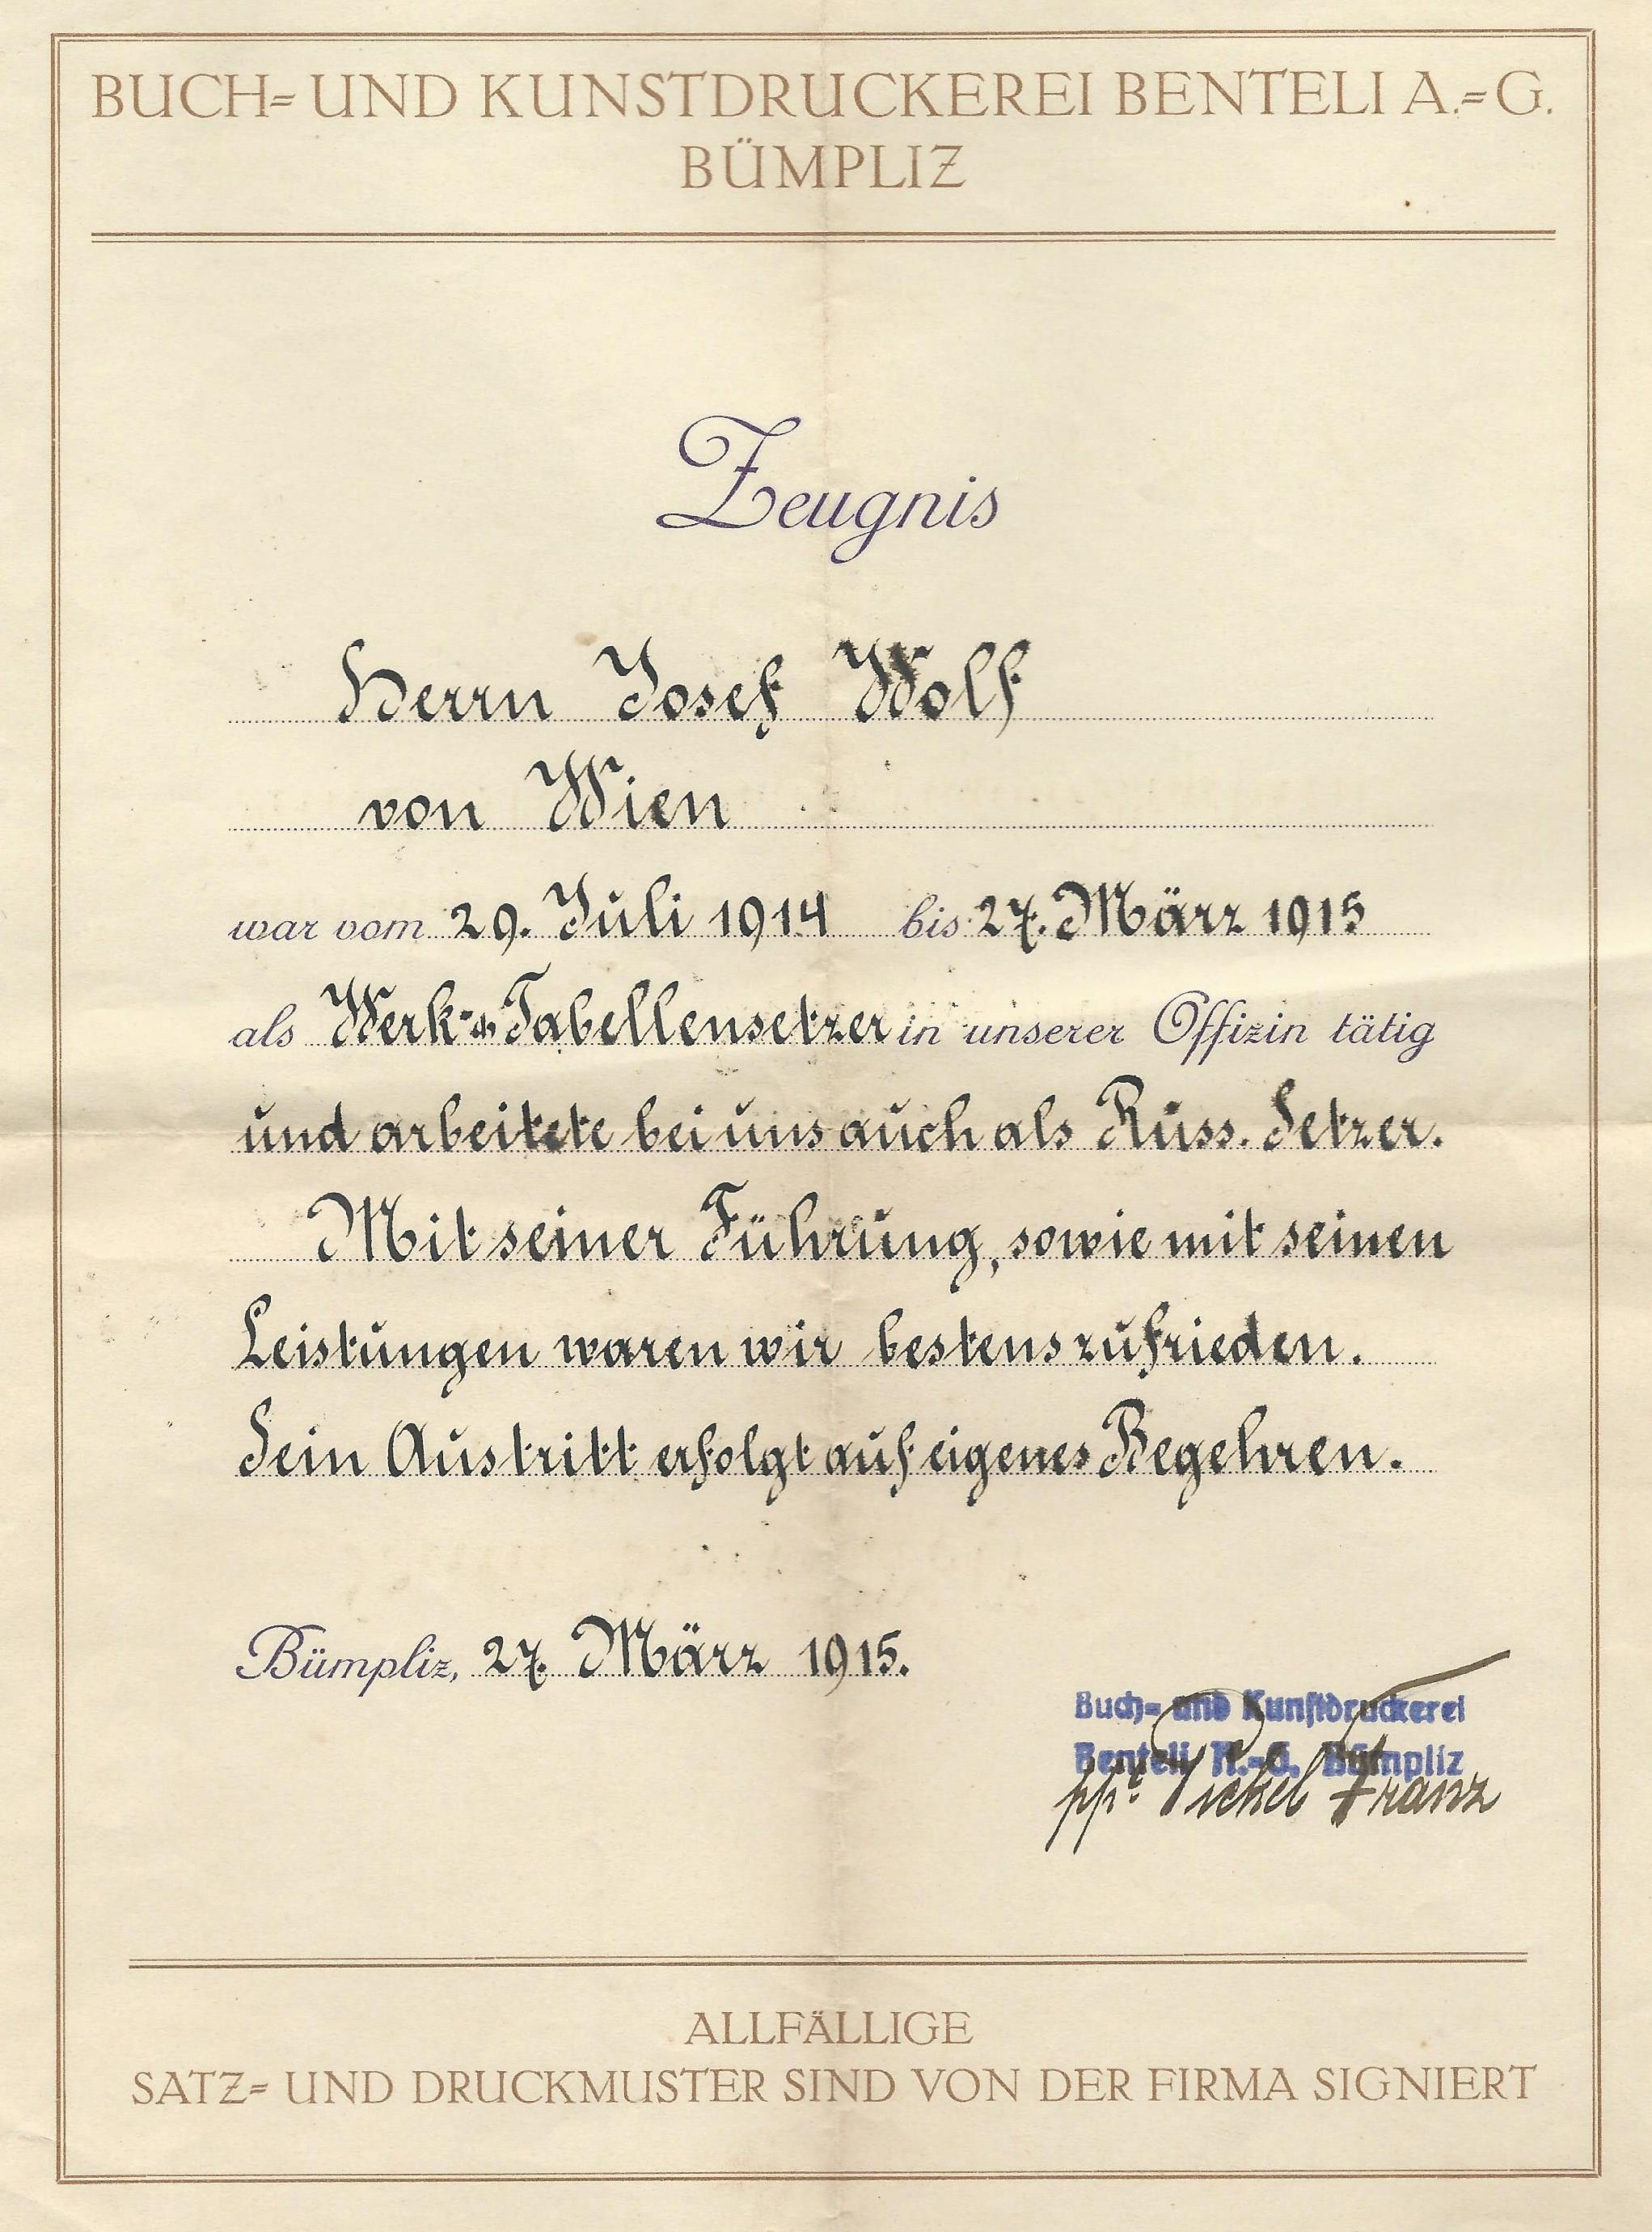 BUCH= UND KUNSTDRUCKEREI BENTELI A.=G.
BÜMPLIZ
Zeugnis
Herrn Josef Wolf
von Wien
war vom 29. Juli 1914 bis 27. März 1915
als Werk- & Tabellensetzer in unserer Offizin tätig
und arbeitete bei uns auch als Russ. Setzer.
Mit seiner Führung, sowie mit seinen
Leistungen waren wir bestens zufrieden.
Sein Austritt erfolgt auf eigenes Begehren.
Bümpliz, 27. März 1915.
Buch- und Kunstdruckerei
Benteli A.-G. Bümpliz
ppa Franz
ALLFÄLLIGE
SATZ= UND DRUCKMUSTER SIND VON DER FIRMA SIGNIERT